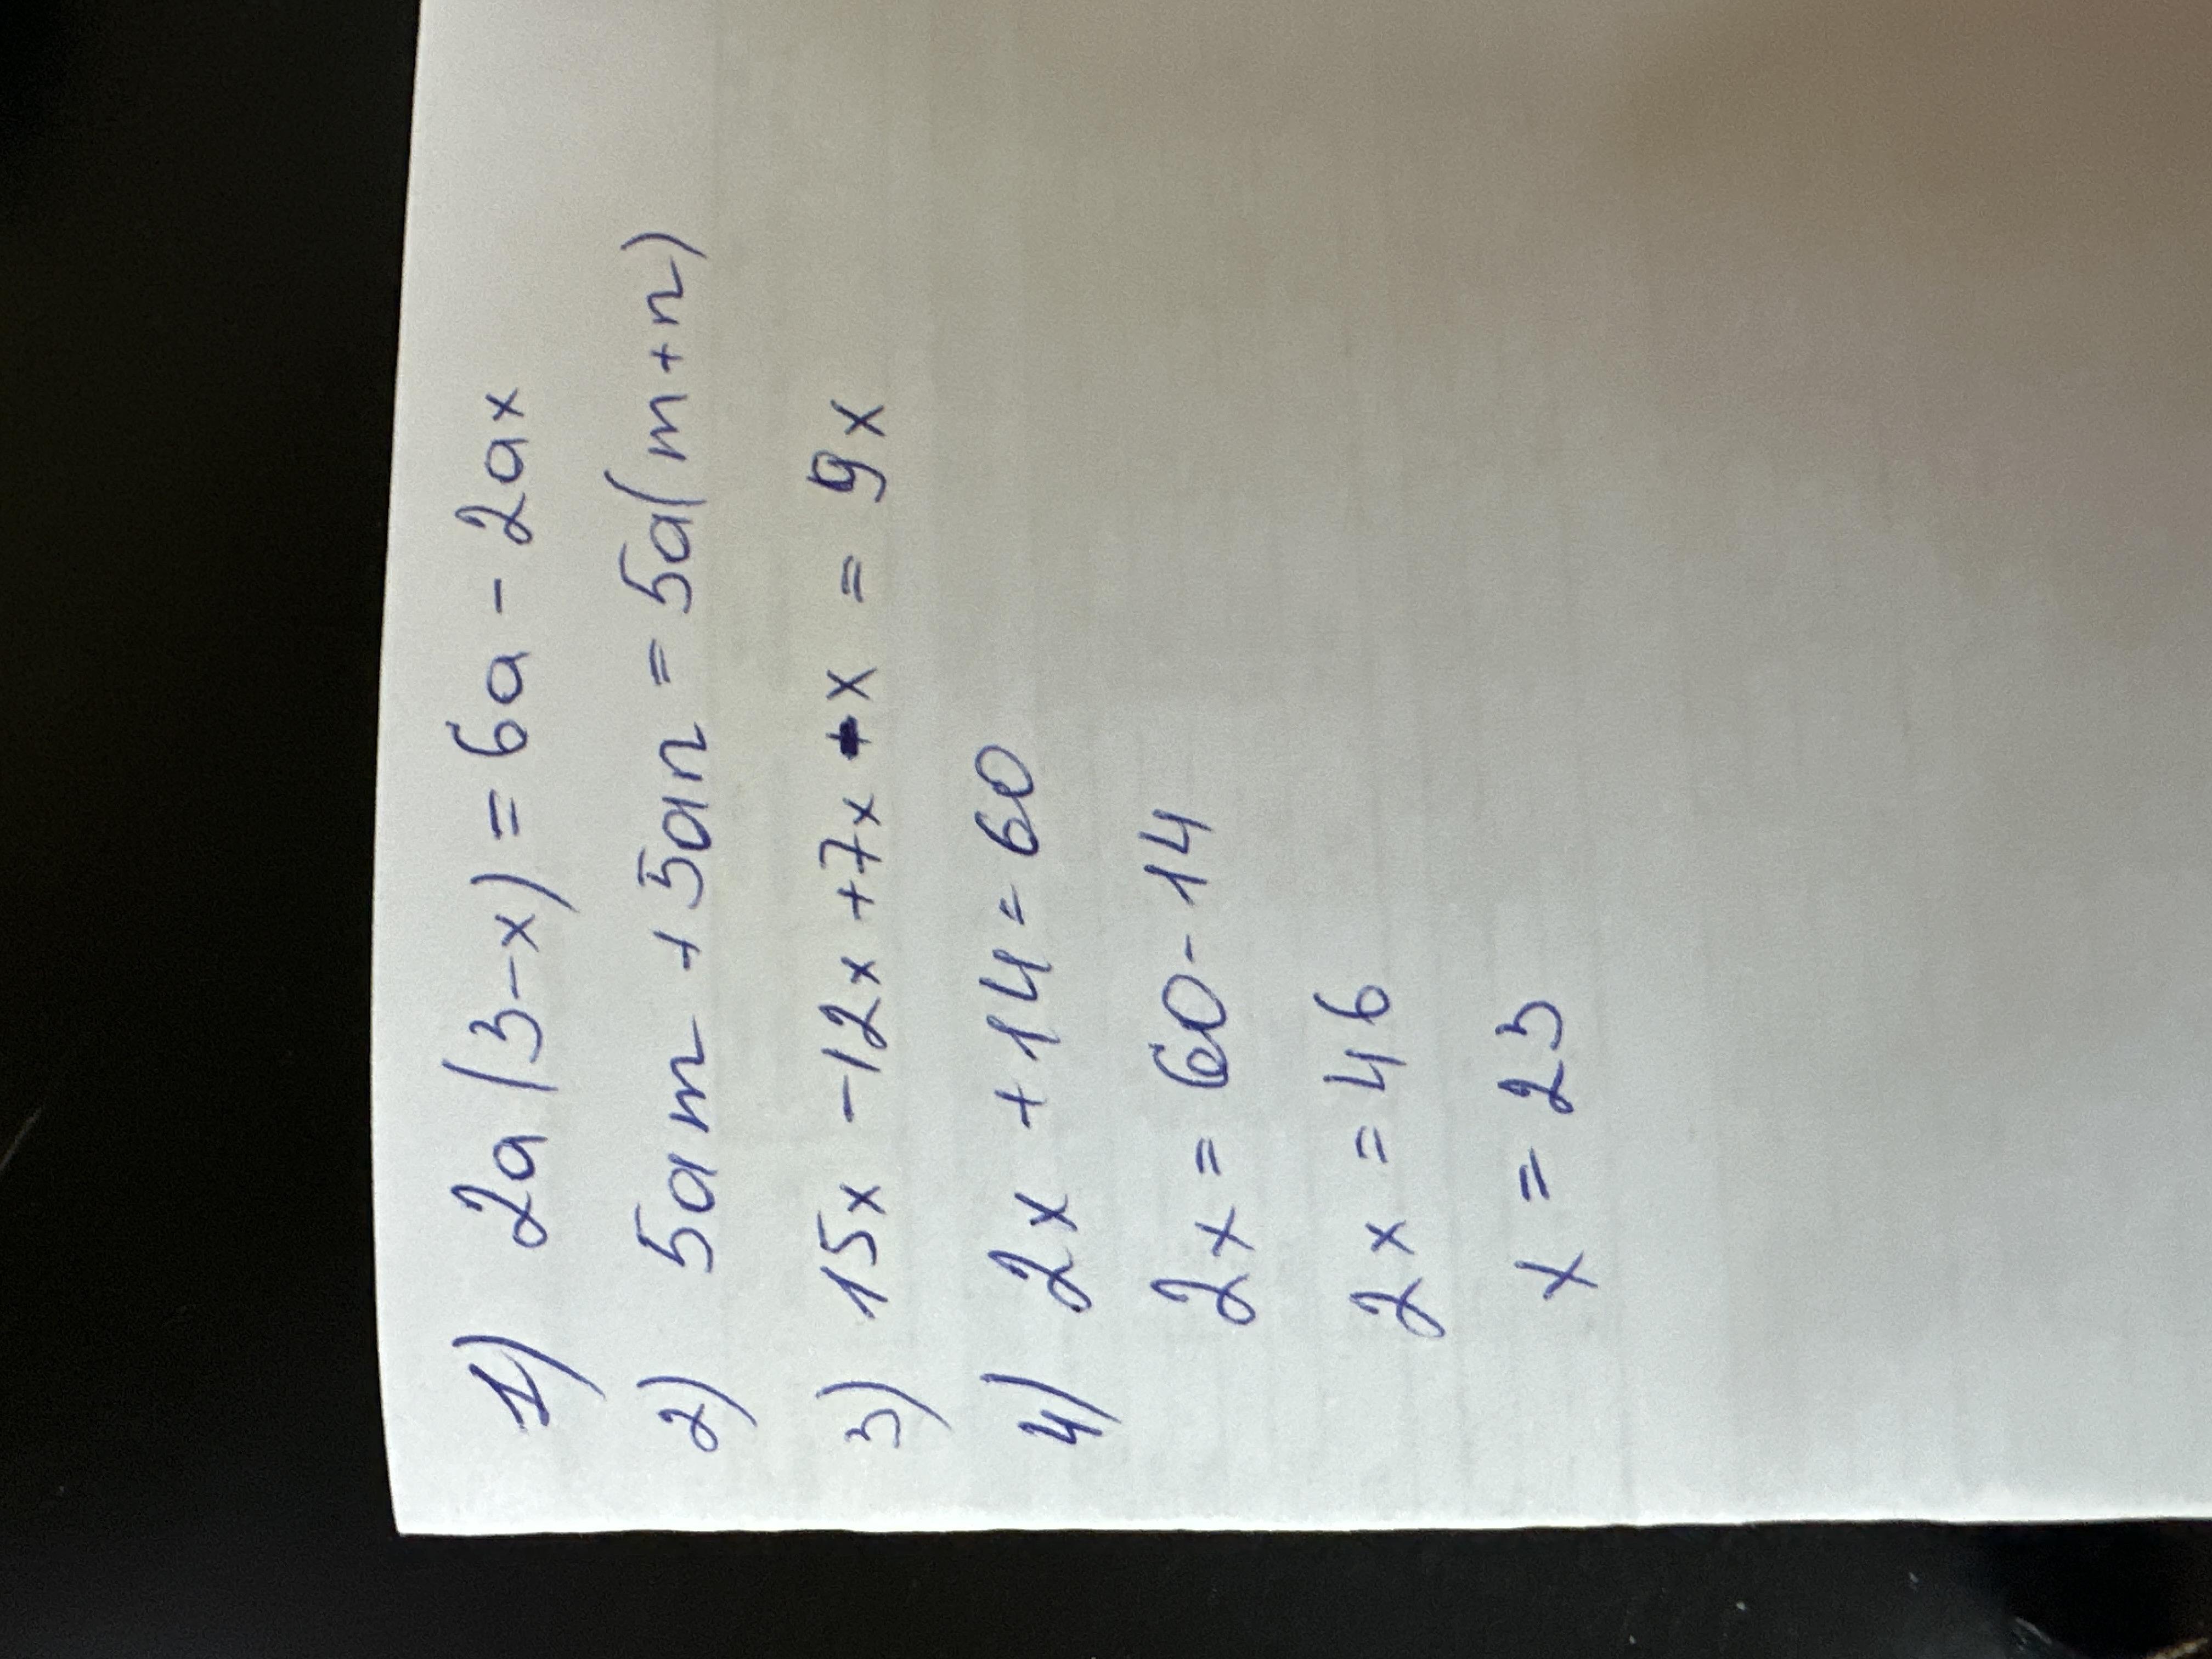 1) 2a(3-x) = 6a - 2ax
2) 5am + 5an = 5a(m+n)
3) 15x - 12x + 7x + x = 9x
4) 2x + 14 = 60
2x = 60 - 14
2x = 46
x = 23